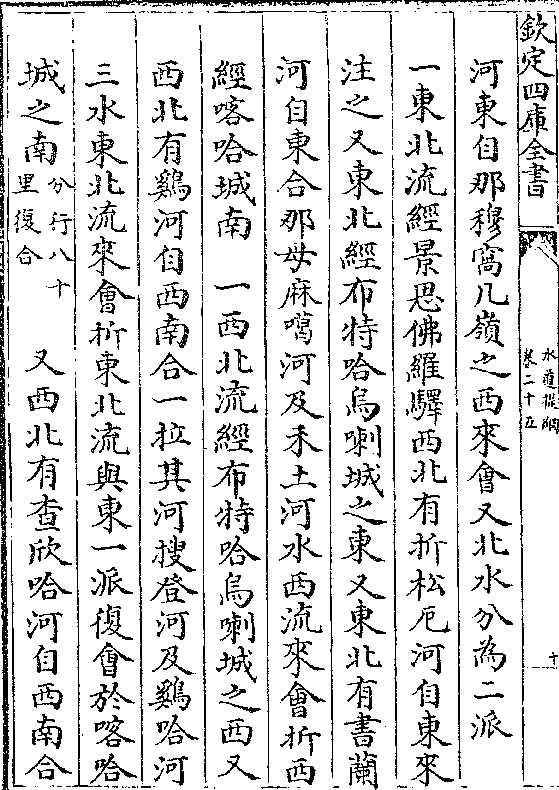 欽定四庫全書
水道提綱
卷二十五
十
河東自那穆窩几嶺之西來會又北水分為二派
一東北流經景思佛羅驛西北有折松厄河自東來
注之又東北經布特哈烏喇城之東又東北有書蘭
河自東合那母麻噶河及禾土河水西流來會折西
經喀哈城南 一西北流經布特哈烏喇城之西又
西北有鷄河自西南合一拉其河搜登河及鷄哈河
三水東北流來會折東北流與東一派復會於喀哈
城之南分行八十里復合 又西北有查欣哈河自西南合